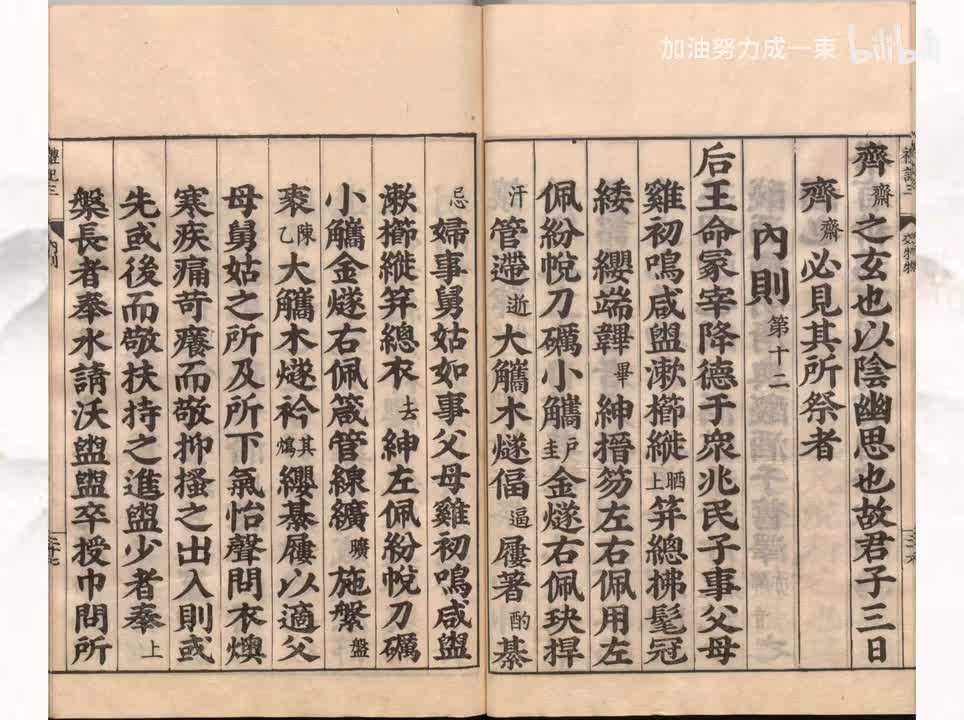 加油努力成一束 bilibili
齊齋之玄也以陰幽思也故君子三日
齊齋必見其所祭者
內則第十二
后王命冢宰降德于衆兆民子事父母
雞初鳴咸盥漱櫛縰上晒笄總拂髦冠
緌纓端韠畢紳搢笏左右佩用左
佩紛帨刀礪小觿戶圭金燧右佩玦捍
汗管遰逝大觿木燧偪逼屨著酌綦
忌婦事舅姑如事父母雞初鳴咸盥
漱櫛縰笄總衣去紳左佩紛帨刀礪
小觿金燧右佩箴管線纊曠施縏盤
袠陳乙大觿木燧衿其鴆纓綦屨以適父
母舅姑之所及所下氣怡聲問衣燠
寒疾痛苛癢而敬抑搔之出入則或
先或後而敬扶持之進盥少者奉上
槃長者奉水請沃盥盥卒授巾問所
禮記三
內則